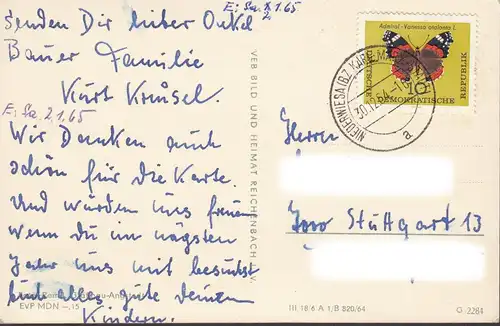 Senden Dir lieber Onkel
Bauer Familie
Kurt
E: Sa. 2.1.65
E: Sa. 2.1.65
Wir Danken auch
schön für die Karte.
Und würden uns freuen
wenn du im nägsten
Jahr uns mit besuchst
alles gute deinen
Kindern.
EVP MDN –.15
VEB BILD UND HEIMAT REICHENBACH I. V.
Admiral - Vanessa atalanta L.
DEUTSCHE DEMOKRATISCHE REPUBLIK
10
NIEDERWIESA (BZ. KARL-MARX-
30.12.64
a
Herrn
7000 Stuttgart 13
III 18/6 A 1/B 820/64
G 2284